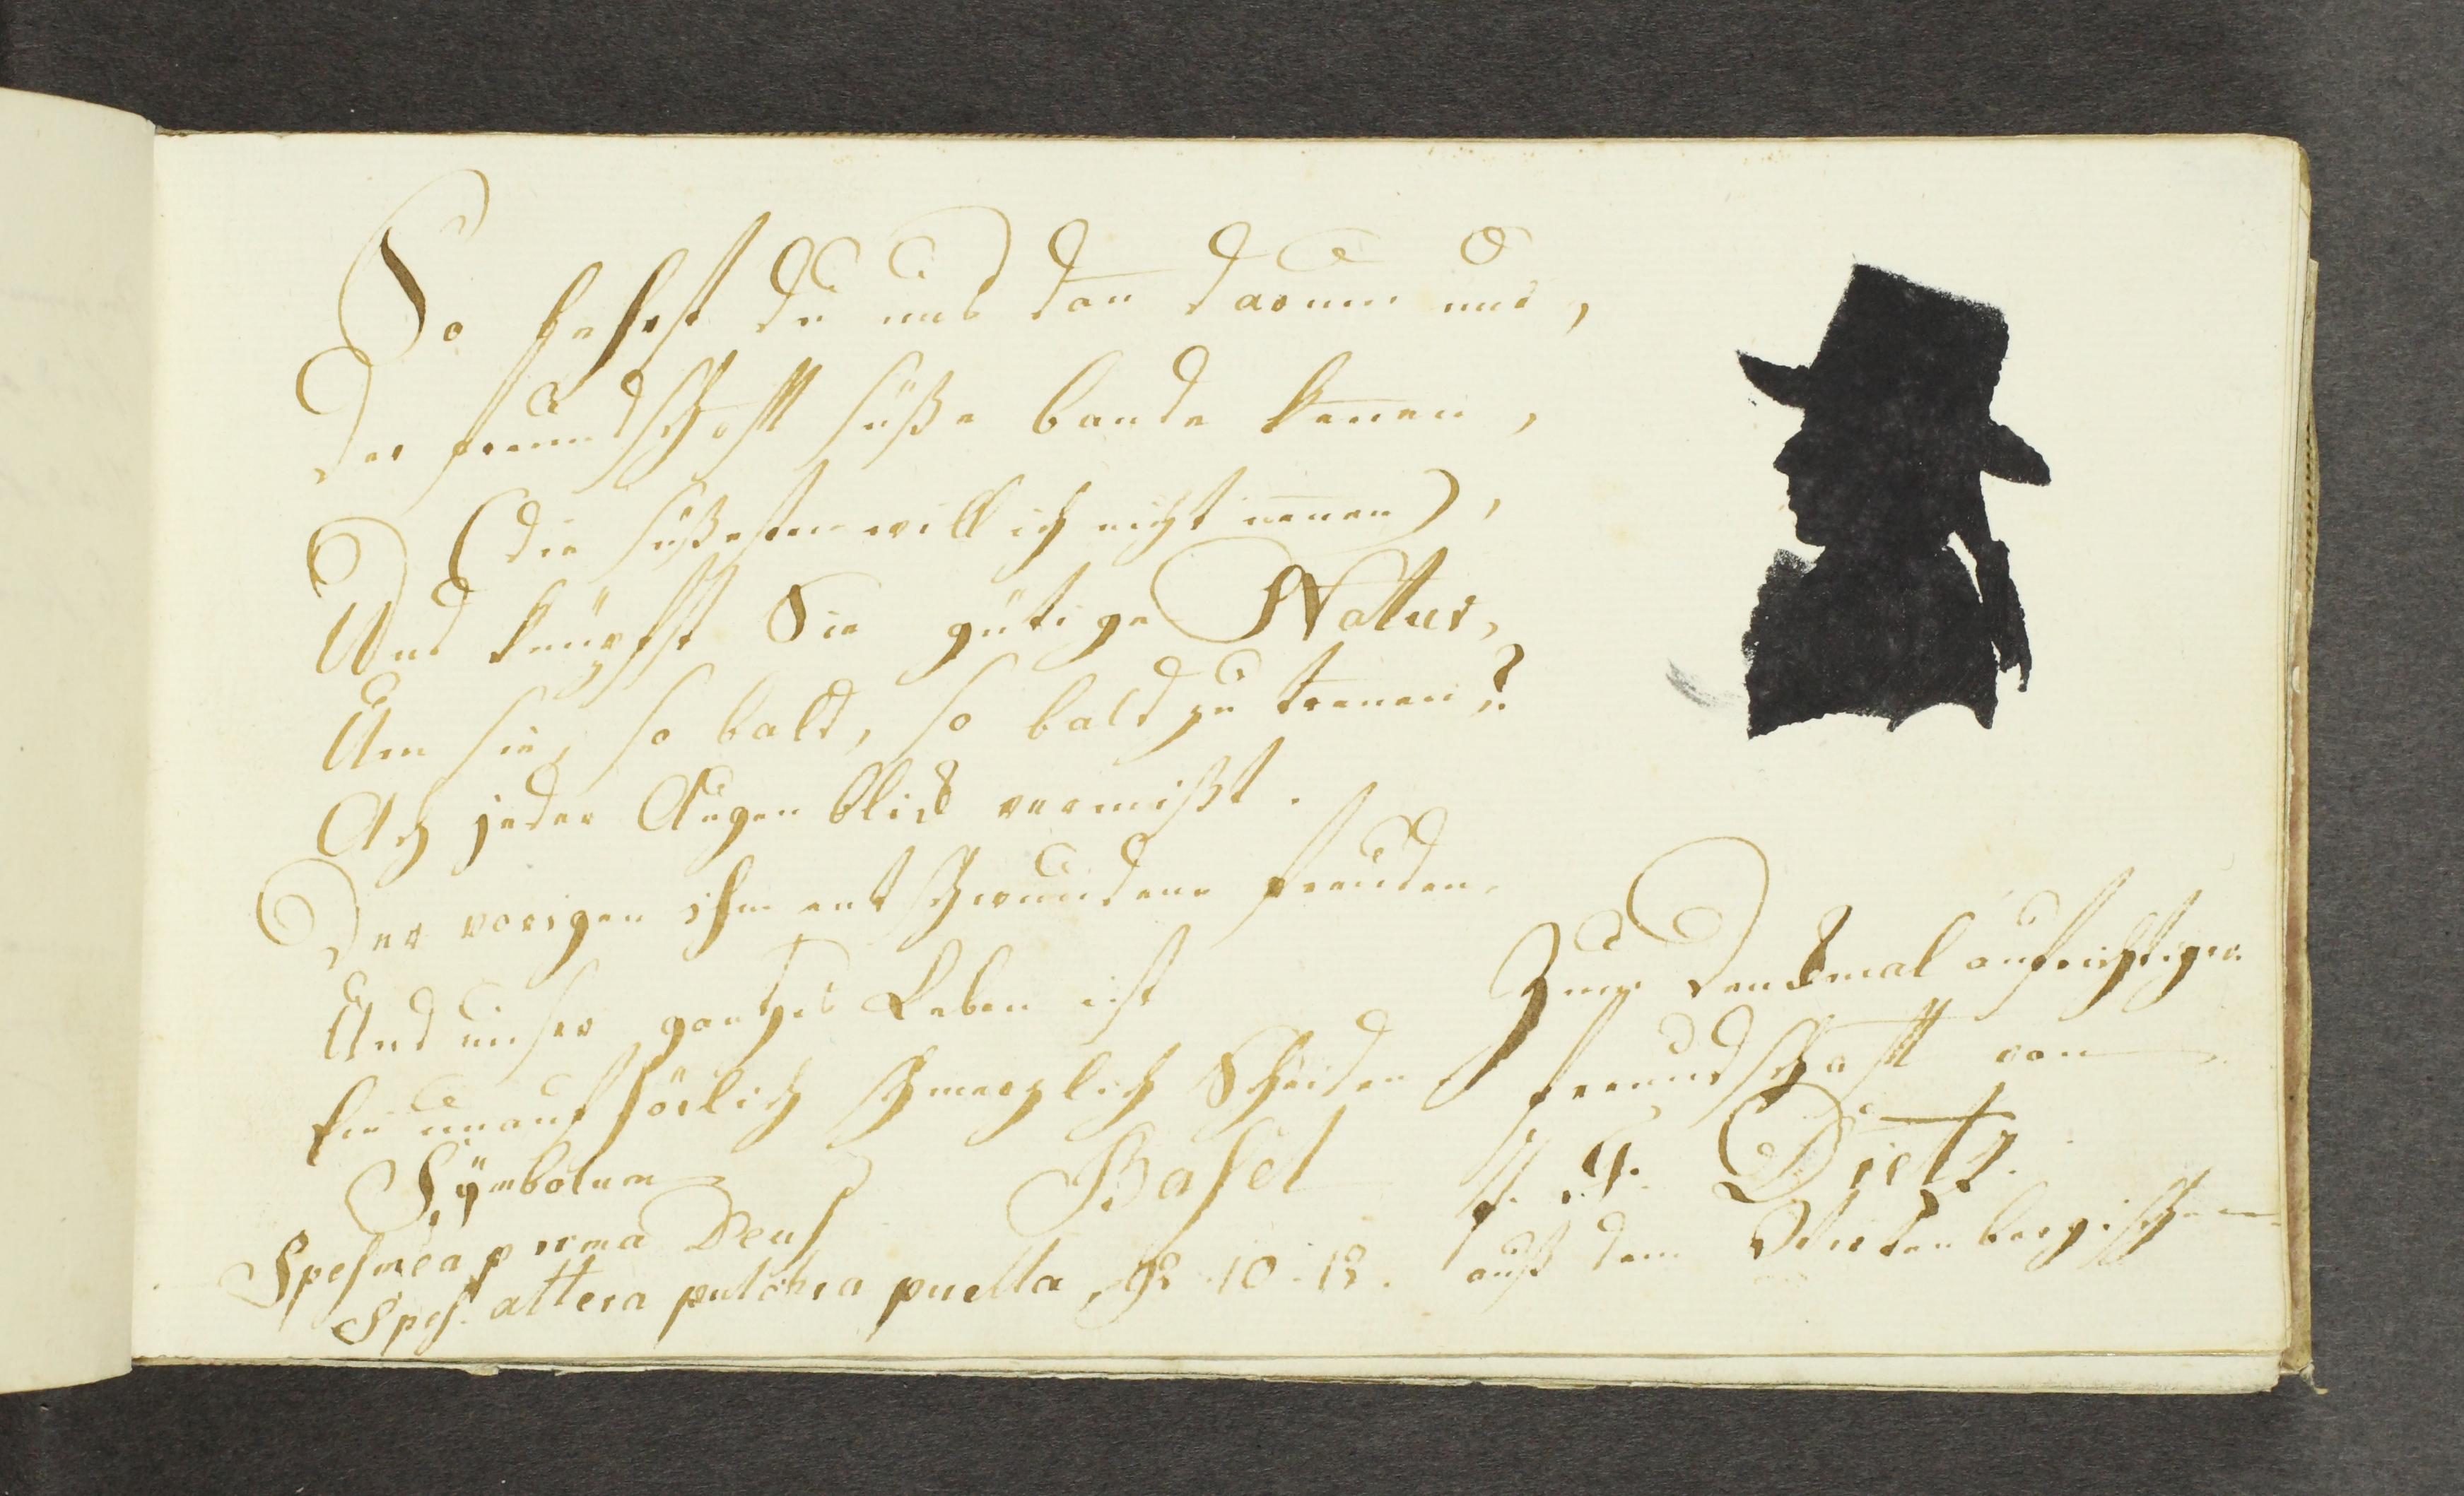 So lehrst du uns dan̄ darum nur,
Der freundschaft süße bande ken̄en,
(die süßesten will ich nicht nen̄en),
Und knüpfst Sie gütige Natur,
Um sie, so bald, so bald zu tren̄en?
Ach jeder Augenblick vermißt.
Der vorigen ihm entschwundene freuden.
Und unser gantzes Leben ist
Ein unaufhörlich schmerzlich Scheiden
Sÿmbolum
Spes mea prima Deus
Spes. altera pulchra puella
Basel
Zum Denkmal aufrichtiger
freundschaft von
Dietz.
auß dem Wirtenbergischen